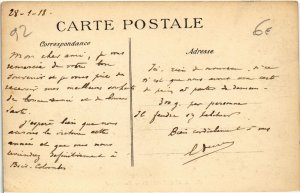 28-1-18
92
6€
CARTE POSTALE
Correspondance
Adresse
Mon cher ami, je vous
remercie de votre bon
souvenir et vous prie de
recevoir mes meilleurs souhaits
de bonne année et de bonne
santé.
J'espère bien que nous
aurons la victoire cette
année et que vous nous
reviendrez définitivement à
Bois-Colombes
de nouveau
que nous avons une carte
de pain et partir de demain.
300 g par personne
Il faudra
Bien cordialement à vous